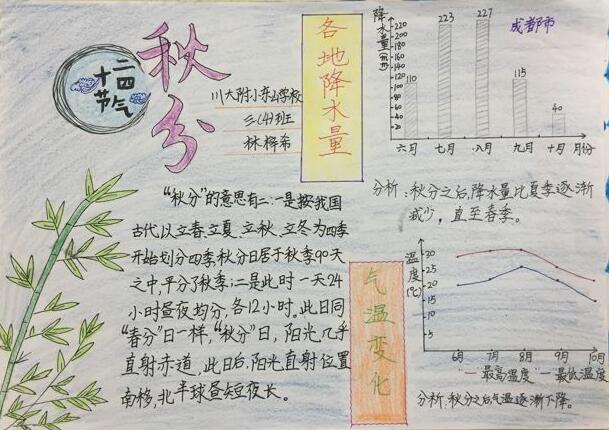 秋分
二十四节气
川大附小东山学校
三(4)班
林桦希
各地降水量
降水量(mm)
220
200
180
160
140
120
100
80
60
40
20
110
223
227
115
40
六月 七月 八月 九月 十月 月份
成都市
分析:秋分之后,降水量比夏季逐渐
减少,直至春季。
“秋分”的意思有二:一是按我国
古代以立春、立夏、立秋、立冬为四季
开始划分四季,秋分日居于秋季90天
之中,平分了秋季;二是此时一天24
小时昼夜均分,各12小时。此日同
“春分”日一样,“秋分”日,阳光几乎
直射赤道,此日后,阳光直射位置
南移,北半球昼短夜长。
气温变化
温度(℃)
30
25
20
15
6月 7月 8月 9月 10月
最高温度 最低温度
分析:秋分之后气温逐渐下降。